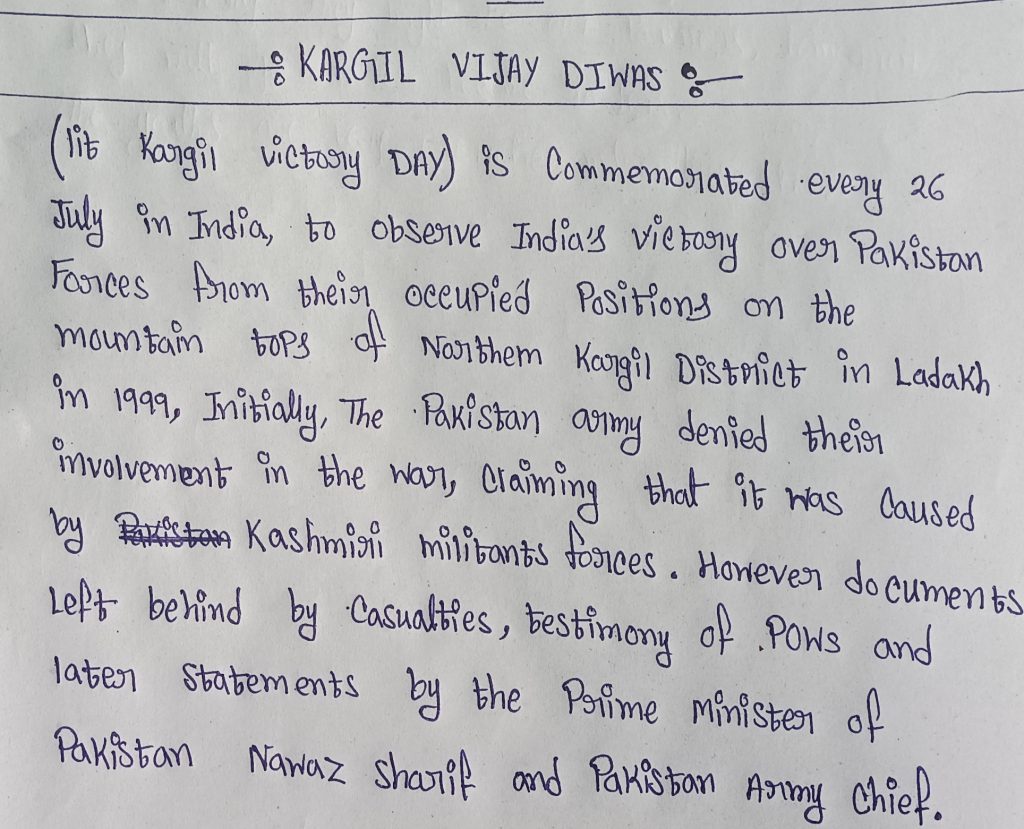 KARGIL VIJAY DIWAS
(lit Kargil victory DAY) is Commemorated every 26
July in India, to observe India's victory over Pakistan
Forces from their occupied Positions on the
mountain tops of Northern Kargil District in Ladakh
in 1999, Initially, The Pakistan army denied their
involvement in the war, Claiming that it was Caused
by Pakistan Kashmiri militants forces. However documents
Left behind by Casualties, testimony of POWs and
later Statements by the Prime Minister of
Pakistan Nawaz Sharif and Pakistan Army Chief.